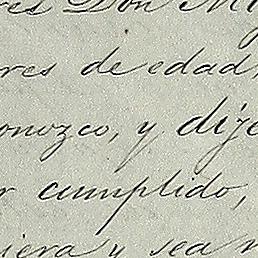 res Don M
res de edad,
onozco, y dije
r cumplido,
iera y sea